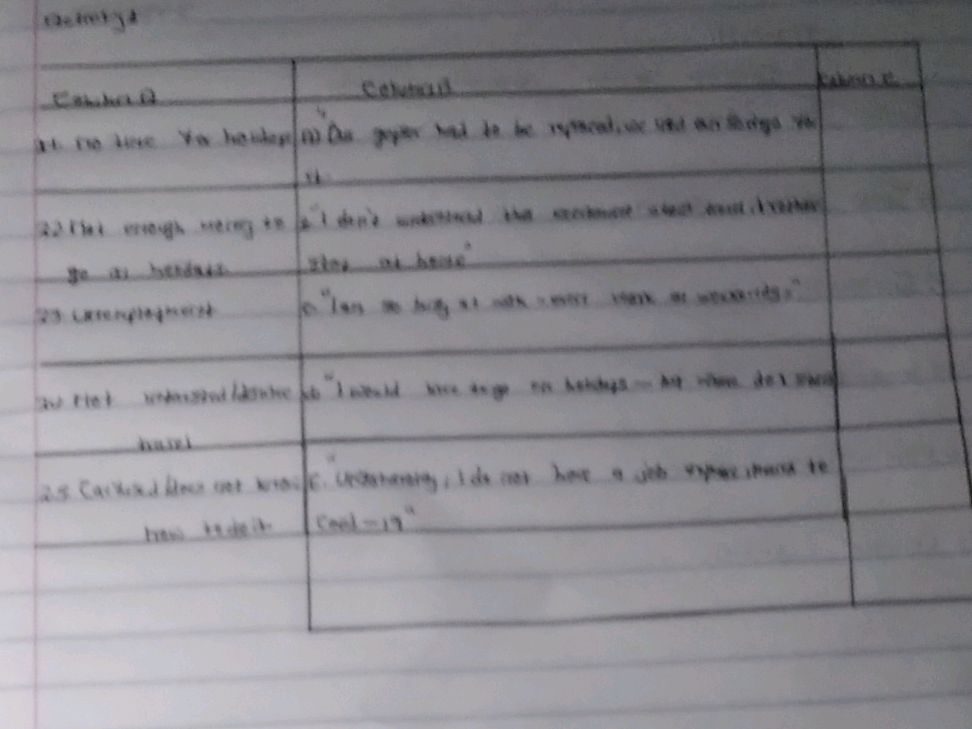 Column A
Column B
Column C
2.1. No time for holidays
A) "Our geyser had to be replaced, we used our savings for
it
2.2 Not enough money to
B. "I don't understand the excitement about travel, I rather
go on holidays
stay at home"
2.3 Unemployment
C. "I am so busy at work I even work on weekends."
2.4 Not interested/
D. "I would love to go on holidays but where do I start
travel
2.5 Confused/does not know
E. Unfortunately, I do not have a job anymore thanks to
how to do it
Covid-19"